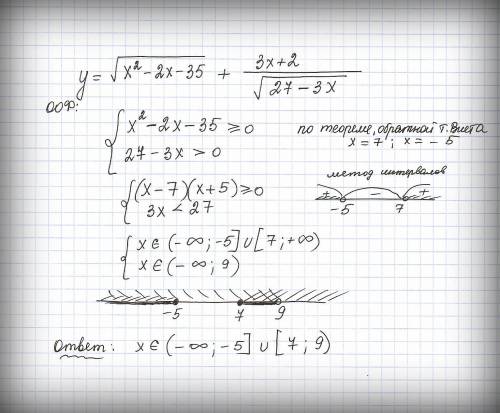 y = √(x² − 2x − 35) + (3x + 2)/√(27 − 3x)
ООФ:
{ x² − 2x − 35 ≥ 0
27 − 3x > 0
по теореме, обратной т. Виета
x = 7 ; x = − 5
{ (x − 7)(x + 5) ≥ 0
3x < 27
метод интервалов
+ − +
−5 7
{ x ∈ (− ∞ ; −5] ∪ [7 ; +∞)
x ∈ (− ∞ ; 9)
−5 7 9
Ответ: x ∈ (− ∞ ; −5] ∪ [7 ; 9)